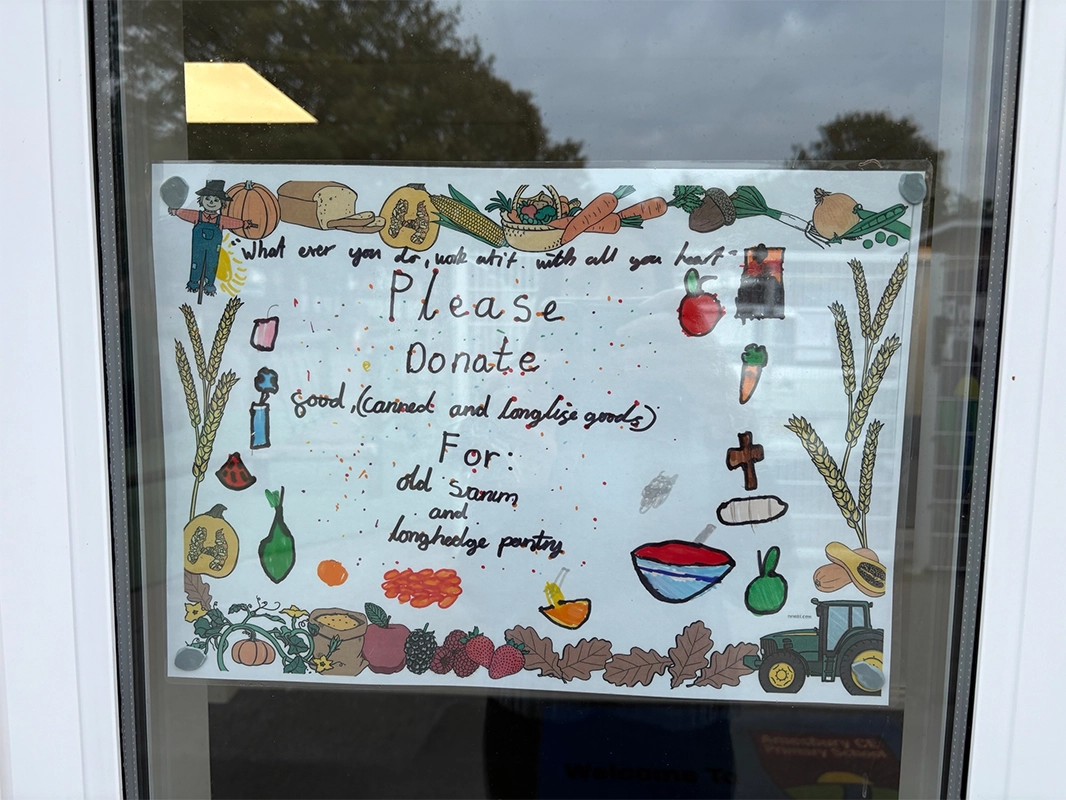 "What ever you do, work at it with all you heart"
Please
Donate
food, (canned and longlise goods)
For:
old Sarum
and
longhedge pantry
Amesbury CE
Primary School
Welcome To